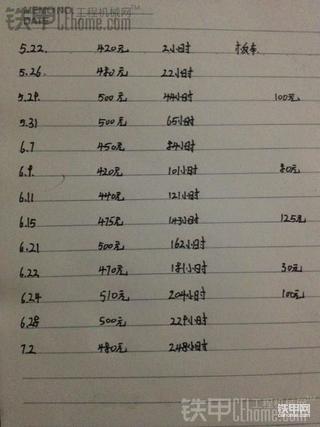 MEMO NO.
DATE
铁甲 工程机械网
Cehome.com
5.22. 420元 2小时
5.26. 480元 22小时
5.29. 500元 44小时 100元
5.31 500元 65小时
6.7 450元 84小时
6.9. 420元 101小时 80元
6.11 440元 121小时
6.15 475元 143小时 125元
6.21 500元 162小时
6.22 470元 181小时 30元
6.24 510元 204小时 100元
6.28 500元 229小时
7.2 480元 248小时
铁甲 工程机械网
Cehome.com
铁甲网